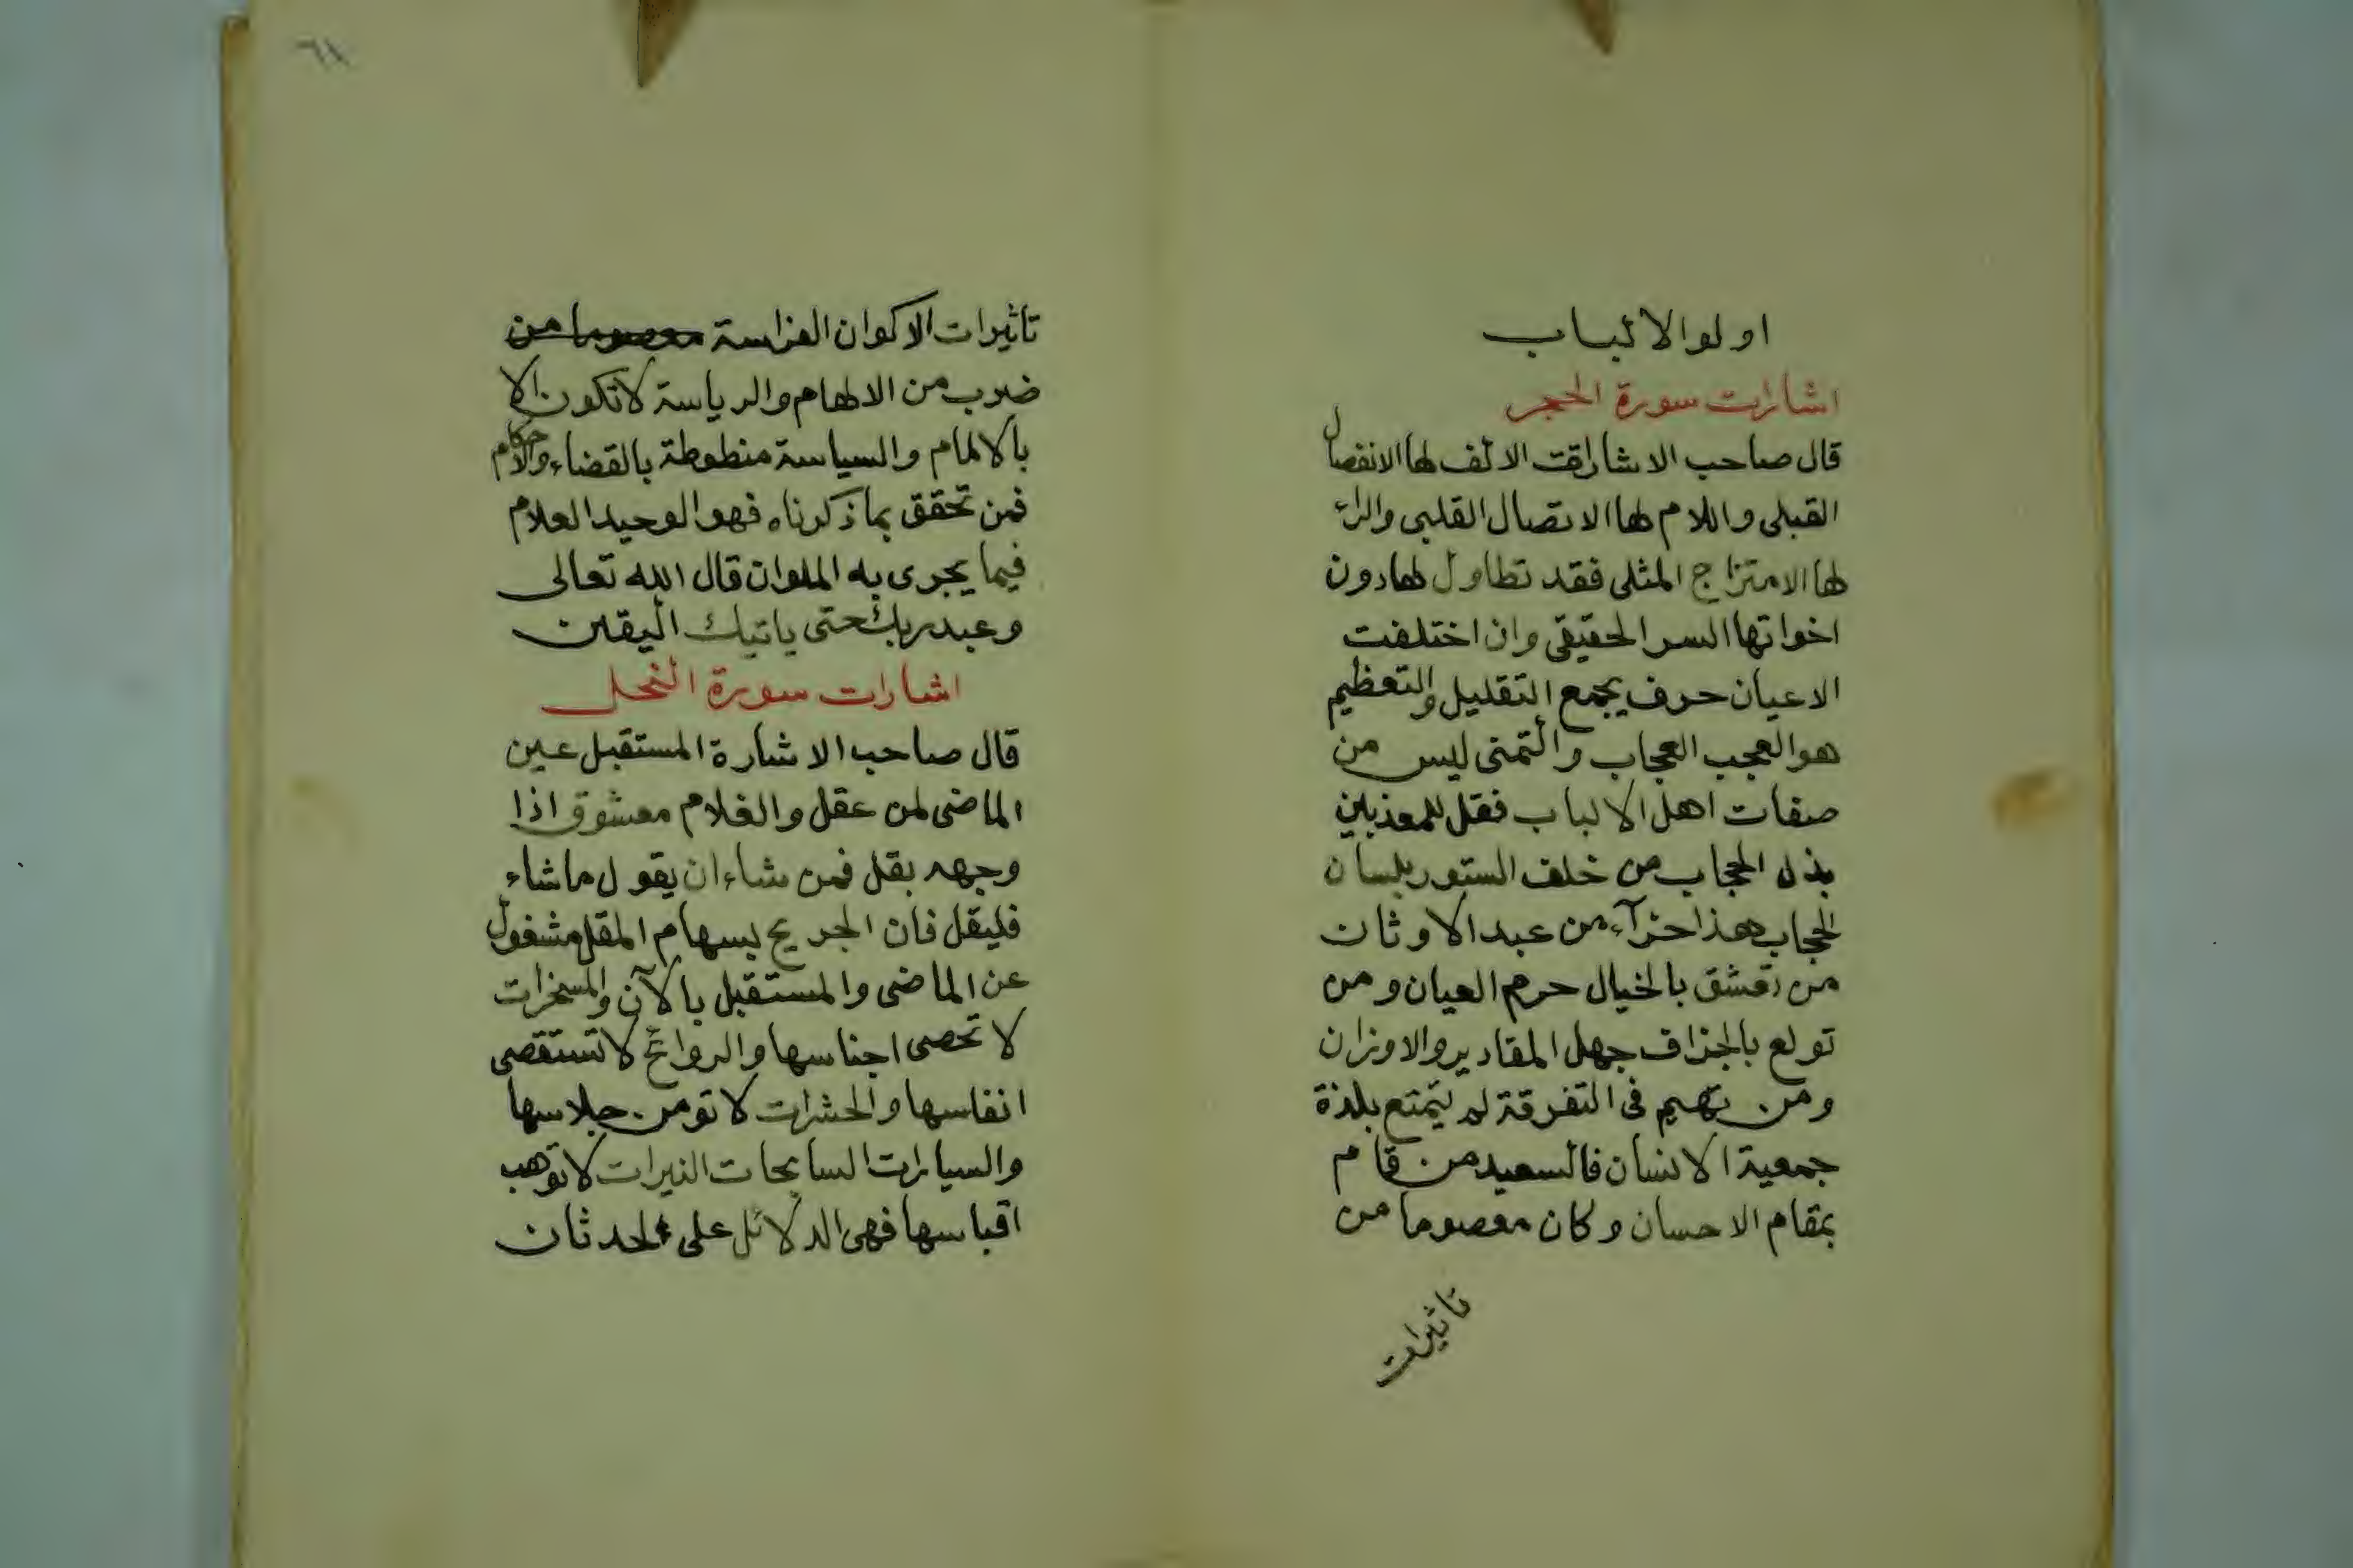 اولوا الالباب
اشارات سورة الحجر
قال صاحب الاشارات الالف لها الانفصال
القبلى واللام لها الاتصال القلبى والراء
لها الامتزاج المثلى فقد تطاول لها دون
اخواتها السر الحقيقى وان اختلفت
الاعيان حرف يجمع التقليل والتعظيم
هو العجب العجاب والتمنى ليس من
صفات اهل الالباب فقل للمعذبين
بذل الحجاب من خلف الستور بلسان
الحجاب هذا جزآء من عبد الاوثان
من تعشق بالخيال حرم العيان ومن
تولع بالجزاف جهل المقادير والاوزان
ومن تهيم فى التفرقة لم يتمتع بلذة
جمعية الانسان فالسعيد من قام
بمقام الاحسان وكان معصوما من
تاثيرات
٦١
تاثيرات الاكوان الفراسة معصوما من
ضرب من الالهام والرياسة لا تكون الا
بالالمام والسياسة منطوطة بالقضاء والاحكام
فمن تحقق بما ذكرناه فهو الوحيد العلام
فيما يجرى به الملوان قال الله تعالى
وعبد ربك حتى ياتيك اليقين
اشارات سورة النحل
قال صاحب الاشارة المستقبل عين
الماضى لمن عقل والغلام معشوق اذا
وجهه بقل فمن شاء ان يقول ما شاء
فليقل فان الجريح بسهام المقل مشغول
عن الماضى والمستقبل بالآن والمسخرات
لا تحصى اجناسها والروائح لا تستقصى
انفاسها والحشرات لا تومن جلاسها
والسيارات السابحات النيرات لا توهب
اقباسها فهى الدلائل على الحدثان